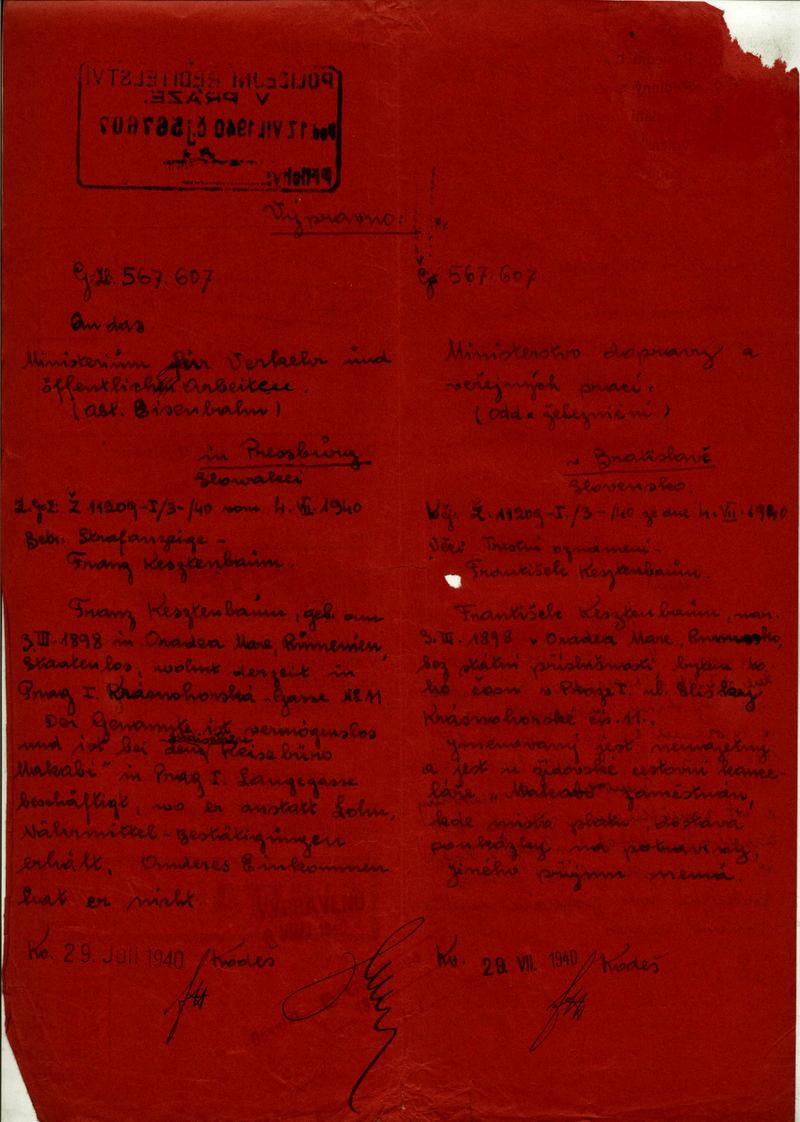 POLICEJNÍ ŘEDITELSTVÍ
V PRAZE.
Pod 17.VII.1940 čj 567607
Přílohy:
Výpravno:
G-Zl. 567.607
An das
Ministerium für Verkehr und
öffentlichen Arbeiten.
(abt. Eisenbahn)
in Pressburg
Slowakei
Z. Gz: Ž 11209-I/3-/40 vom 4. VII. 1940
Betr. Strafanzeige -
Franz Kesztenbaum.
Franz Kesztenbaum, geb. am
3.III.1898 in Oradea Mare, Rumenien,
Staatenlos, wohnt derzeit in
Prag I. Krásnohorská-Gasse № 11
Der Genannte ist vermögenslos
und ist bei dem Reisebüro
Makabi" in Prag I. Langegasse
beschäftigt, wo er anstatt Lohn,
Nährmittel-Bestätigungen
erhält. Anderes Einkommen
hat er nicht.
Ko. 29. Juli 1940 Kodeš
567.607
Ministerstvo dopravy a
veřejných prací.
(Odd. železniční)
v Bratislavě
Slovensko.
K čj: Ž. 11209-I./3-/40 ze dne 4. VII. 1940
Věc: Trestní oznámení -
František Kesztenbaum.
František Kesztenbaum, nar.
3.III.1898 v Oradea Mare, Rumunsko,
bez státní příslušnosti, bytem to-
ho času v Praze I. ul. Elišky
Krásnohorské čís. 11.,
Jmenovaný jest nemajetný
a jest u židovské cestovní kance-
láře „Makabi" zaměstnán,
kde místo platu dostává
poukázky na potraviny,
jiného příjmu nemá.
Ko. 29. VII. 1940 Kodeš